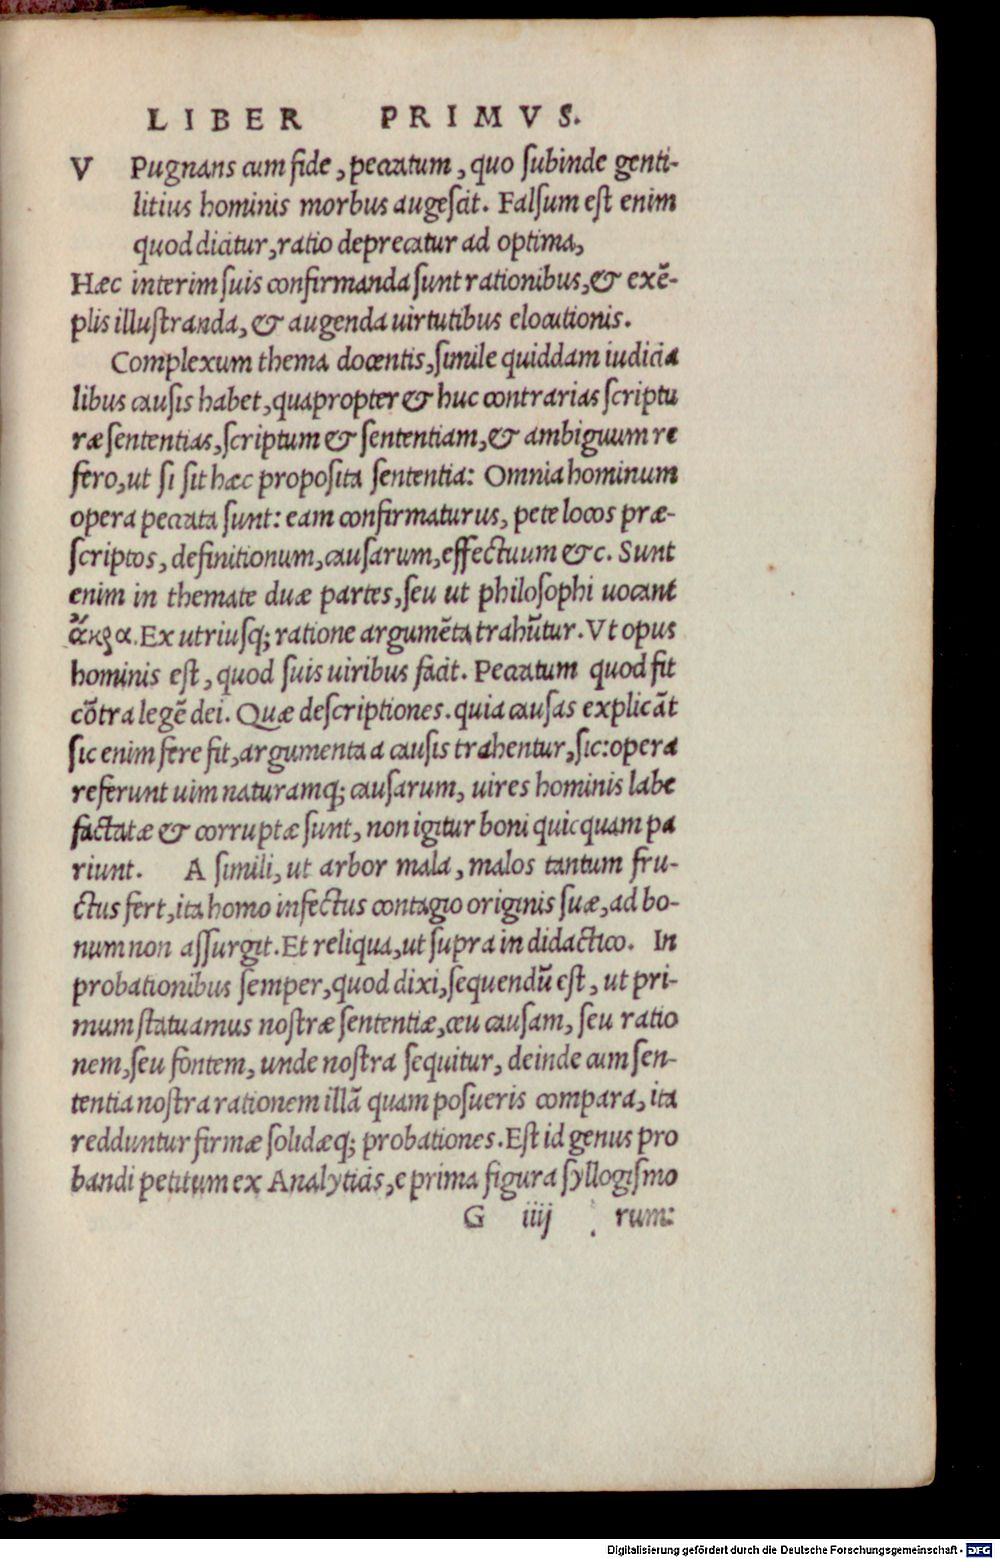 LIBER PRIMVS.
V Pugnans cum fide, peccatum, quo subinde genti-
litius hominis morbus augescit. Falsum est enim
quod dicitur, ratio deprecatur ad optima,
Hæc interim suis confirmanda sunt rationibus, & exē-
plis illustranda, & augenda uirtutibus elocutionis.
Complexum thema docentis, simile quiddam iudicia
libus causis habet, quapropter & huc contrarias scriptu
ræ sententias, scriptum & sententiam, & ambiguum re
fero, ut si sit hæc proposita sententia: Omnia hominum
opera peccata sunt: eam confirmaturus, pete locos præ-
scriptos, definitionum, causarum, effectuum &c. Sunt
enim in themate duæ partes, seu ut philosophi uocant
ἄκρα. Ex utriusq; ratione argumēta trahūtur. Vt opus
hominis est, quod suis uiribus facit. Peccatum quod fit
cōtra legē dei. Quæ descriptiones. quia causas explicāt
sic enim fere fit, argumenta a causis trahentur, sic: opera
referunt uim naturamq; causarum, uires hominis labe
factatæ & corruptæ sunt, non igitur boni quicquam pa
riunt. A simili, ut arbor mala, malos tantum fru-
ctus fert, ita homo infectus contagio originis suæ, ad bo-
num non assurgit. Et reliqua, ut supra in didactico. In
probationibus semper, quod dixi, sequendū est, ut pri-
mum statuamus nostræ sententiæ, ceu causam, seu ratio
nem, seu fontem, unde nostra sequitur, deinde cum sen-
tentia nostra rationem illā quam posueris compara, ita
redduntur firmæ solidæq; probationes. Est id genus pro
bandi petitum ex Analyticis, e prima figura syllogismo
G iiij rum:
Digitalisierung gefördert durch die Deutsche Forschungsgemeinschaft - DFG